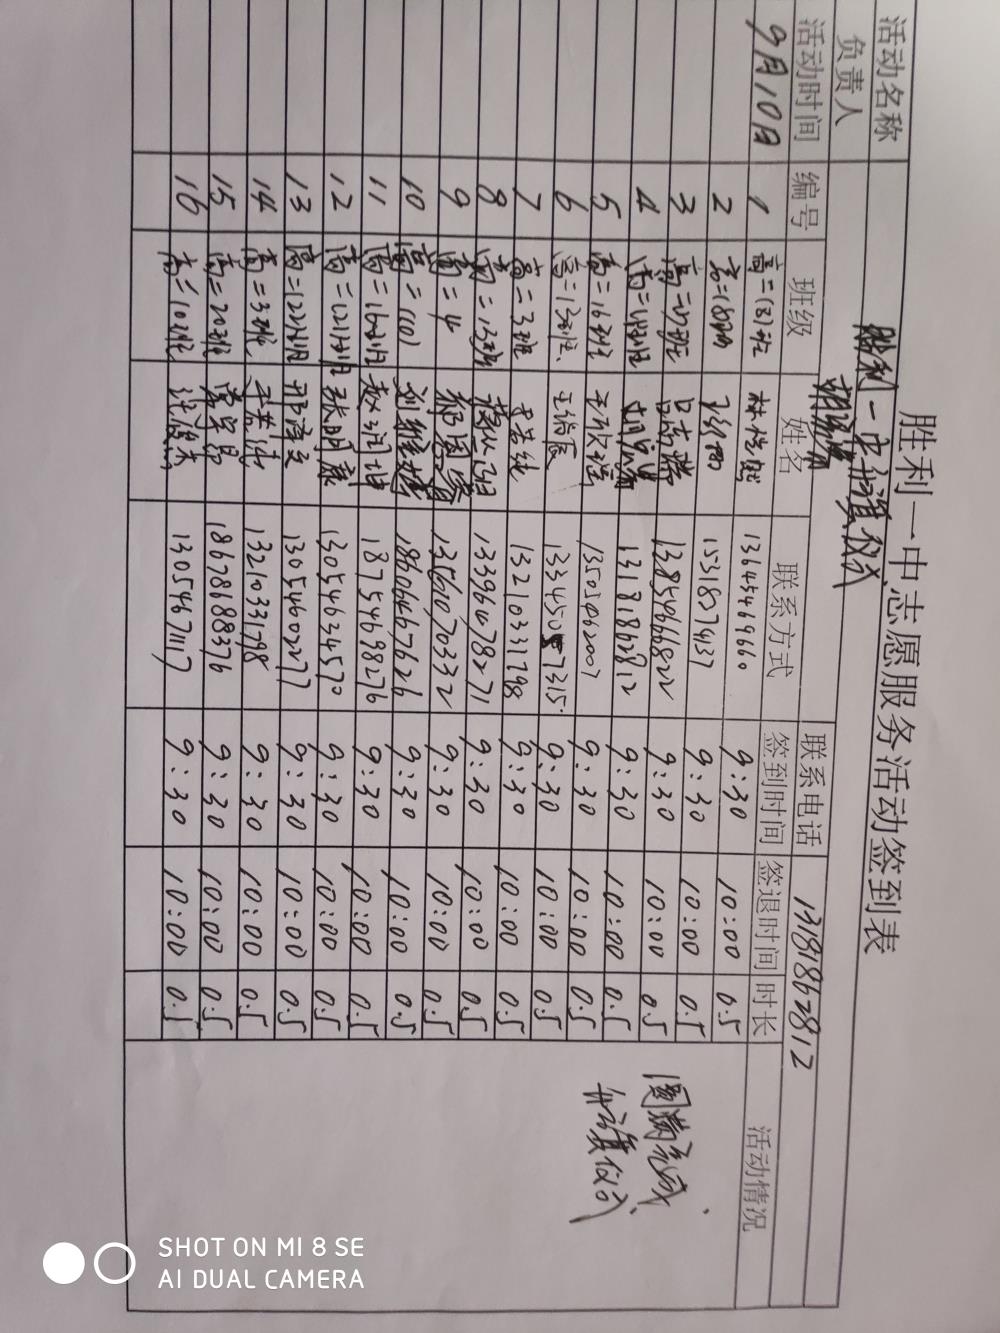 胜利一中志愿服务活动签到表
活动名称 胜利一中升旗仪式
负责人 联系电话 13181862812
活动时间 编号 班级 姓名 联系方式 签到时间 签退时间 时长 活动情况
9月10日 1 高二(8)班 13645469660 9:30 10:00 0.5
2 高二18班 15318074137 9:30 10:00 0.5
3 高二 吕浩 13854666822 9:30 10:00 0.5
4 高二 13181862812 9:30 10:00 0.5
5 高二16班 13505462007 9:30 10:00 0.5
6 高二13班 王 9:30 10:00 0.5
7 高二3班 13210331798 9:30 10:00 0.5
8 高二13班 13396478271 9:30 10:00 0.5
9 高二4 13561070332 9:30 10:00 0.5
10 高二(10) 刘维 18606467626 9:30 10:00 0.5
11 高二16班 赵润坤 18754698276 9:30 10:00 0.5
12 高二(2)班 张明康 13054634570 9:30 10:00 0.5
13 高二12班 邢 13054602277 9:30 10:00 0.5
14 高二3班 13210331798 9:30 10:00 0.5
15 高二20班 18678688376 9:30 10:00 0.5
16 高二10班 13054671117 9:30 10:00 0.5
圆满完成
升旗仪式
SHOT ON MI 8 SE
AI DUAL CAMERA